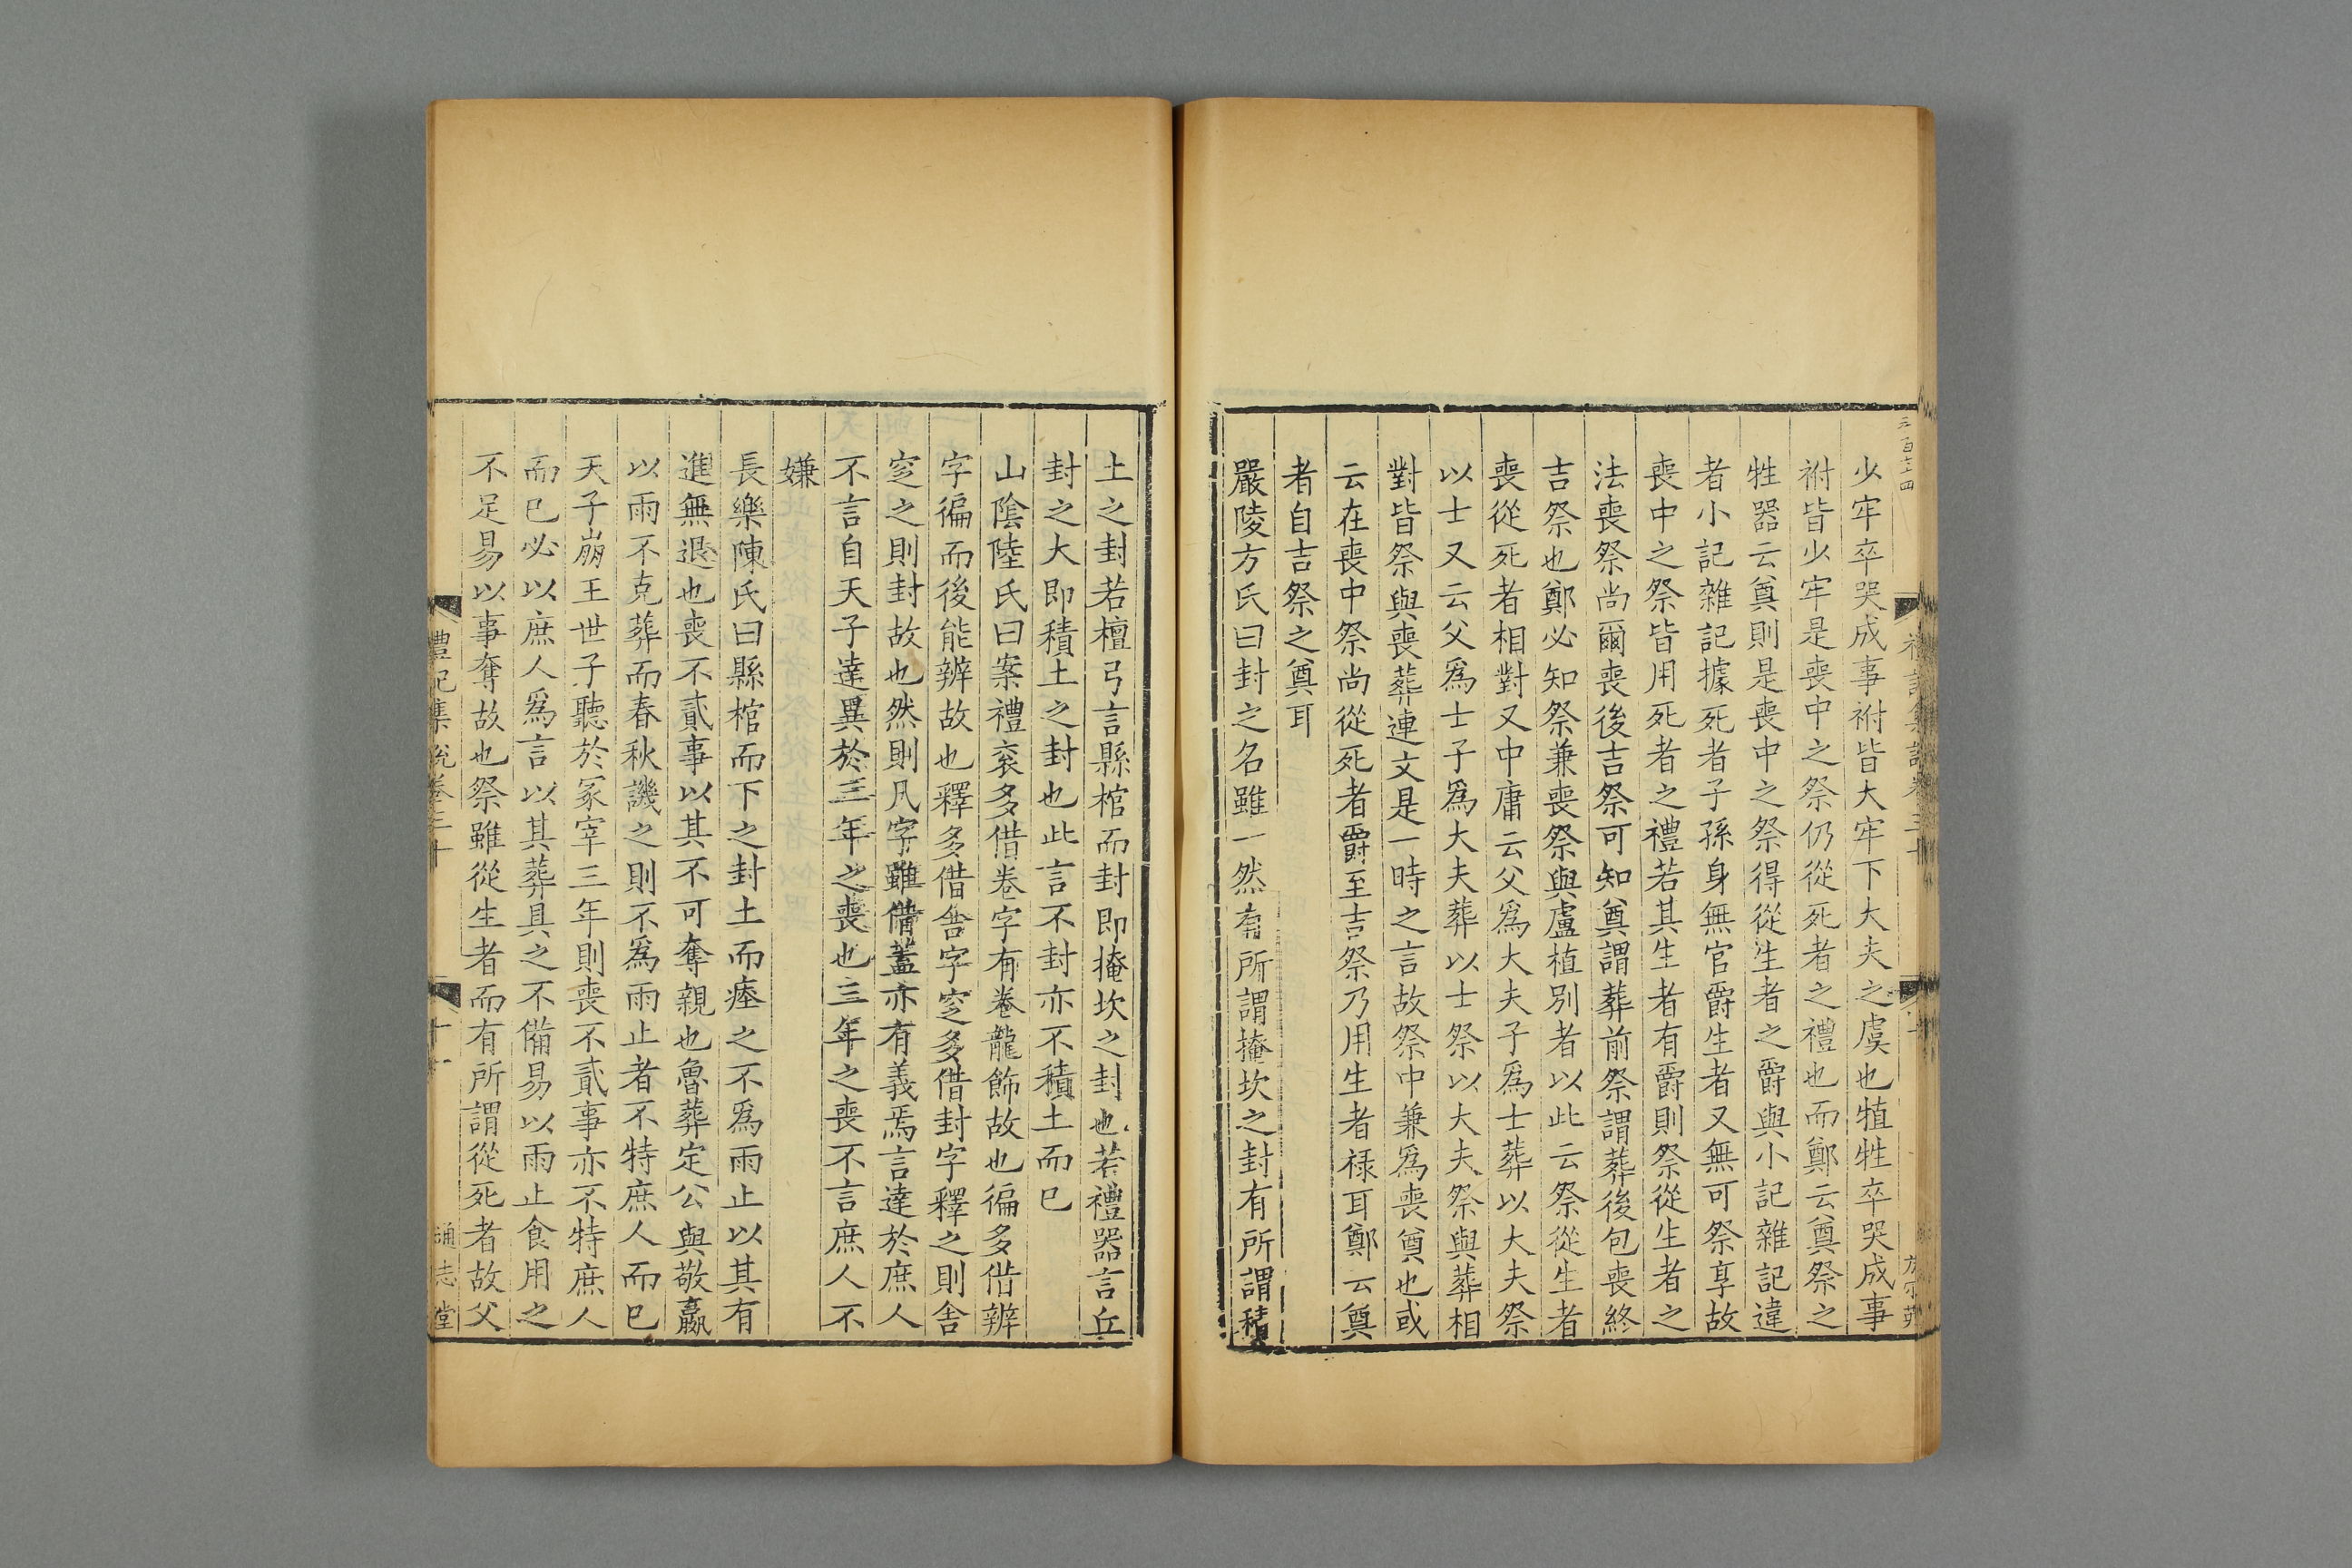 少牢卒哭成事祔皆大牢下大夫之虞也犆牲卒哭成事
祔皆少牢是喪中之祭仍從死者之禮也而鄭云奠祭之
牲器云奠則是喪中之祭得從生者之爵與小記雜記違
者小記雜記據死者子孫身無官爵生者又無可祭享故
喪中之祭皆用死者之禮若其生者有爵則祭從生者之
法喪祭尚爾喪後吉祭可知奠謂葬前祭謂葬後包喪終
吉祭也鄭必知祭兼喪祭與盧植別者以此云祭從生者
喪從死者相對又中庸云父爲大夫子爲士葬以大夫祭
以士又云父爲士子爲大夫葬以士祭以大夫祭與葬相
對皆祭與喪葬連文是一時之言故祭中兼爲喪奠也或
云在喪中祭尚從死者爵至吉祭乃用生者禄耳鄭云奠
者自吉祭之奠耳
嚴陵方氏曰封之名雖一然有所謂掩坎之封有所謂積
土之封若檀弓言縣棺而封即掩坎之封也若禮器言丘
封之大即積土之封也此言不封亦不積土而已
山陰陸氏曰案禮衮多借卷字有卷龍飾故也徧多借辨
字徧而後能辨故也釋多借舍字窆多借封字釋之則舍
窆之則封故也然則凡字雖借蓋亦有義焉言達於庶人
不言自天子達異於三年之喪也三年之喪不言庶人不
嫌
長樂陳氏曰縣棺而下之封土而瘞之不爲雨止以其有
進無退也喪不貳事以其不可奪親也魯葬定公與敬嬴
以雨不克葬而春秋譏之則不爲雨止者不特庶人而已
天子崩王世子聽於冢宰三年則喪不貳事亦不特庶人
而已必以庶人爲言以其葬具之不備易以雨止食用之
不足易以事奪故也祭雖從生者而有所謂從死者故父
禮記集說卷三十
十一
通志堂